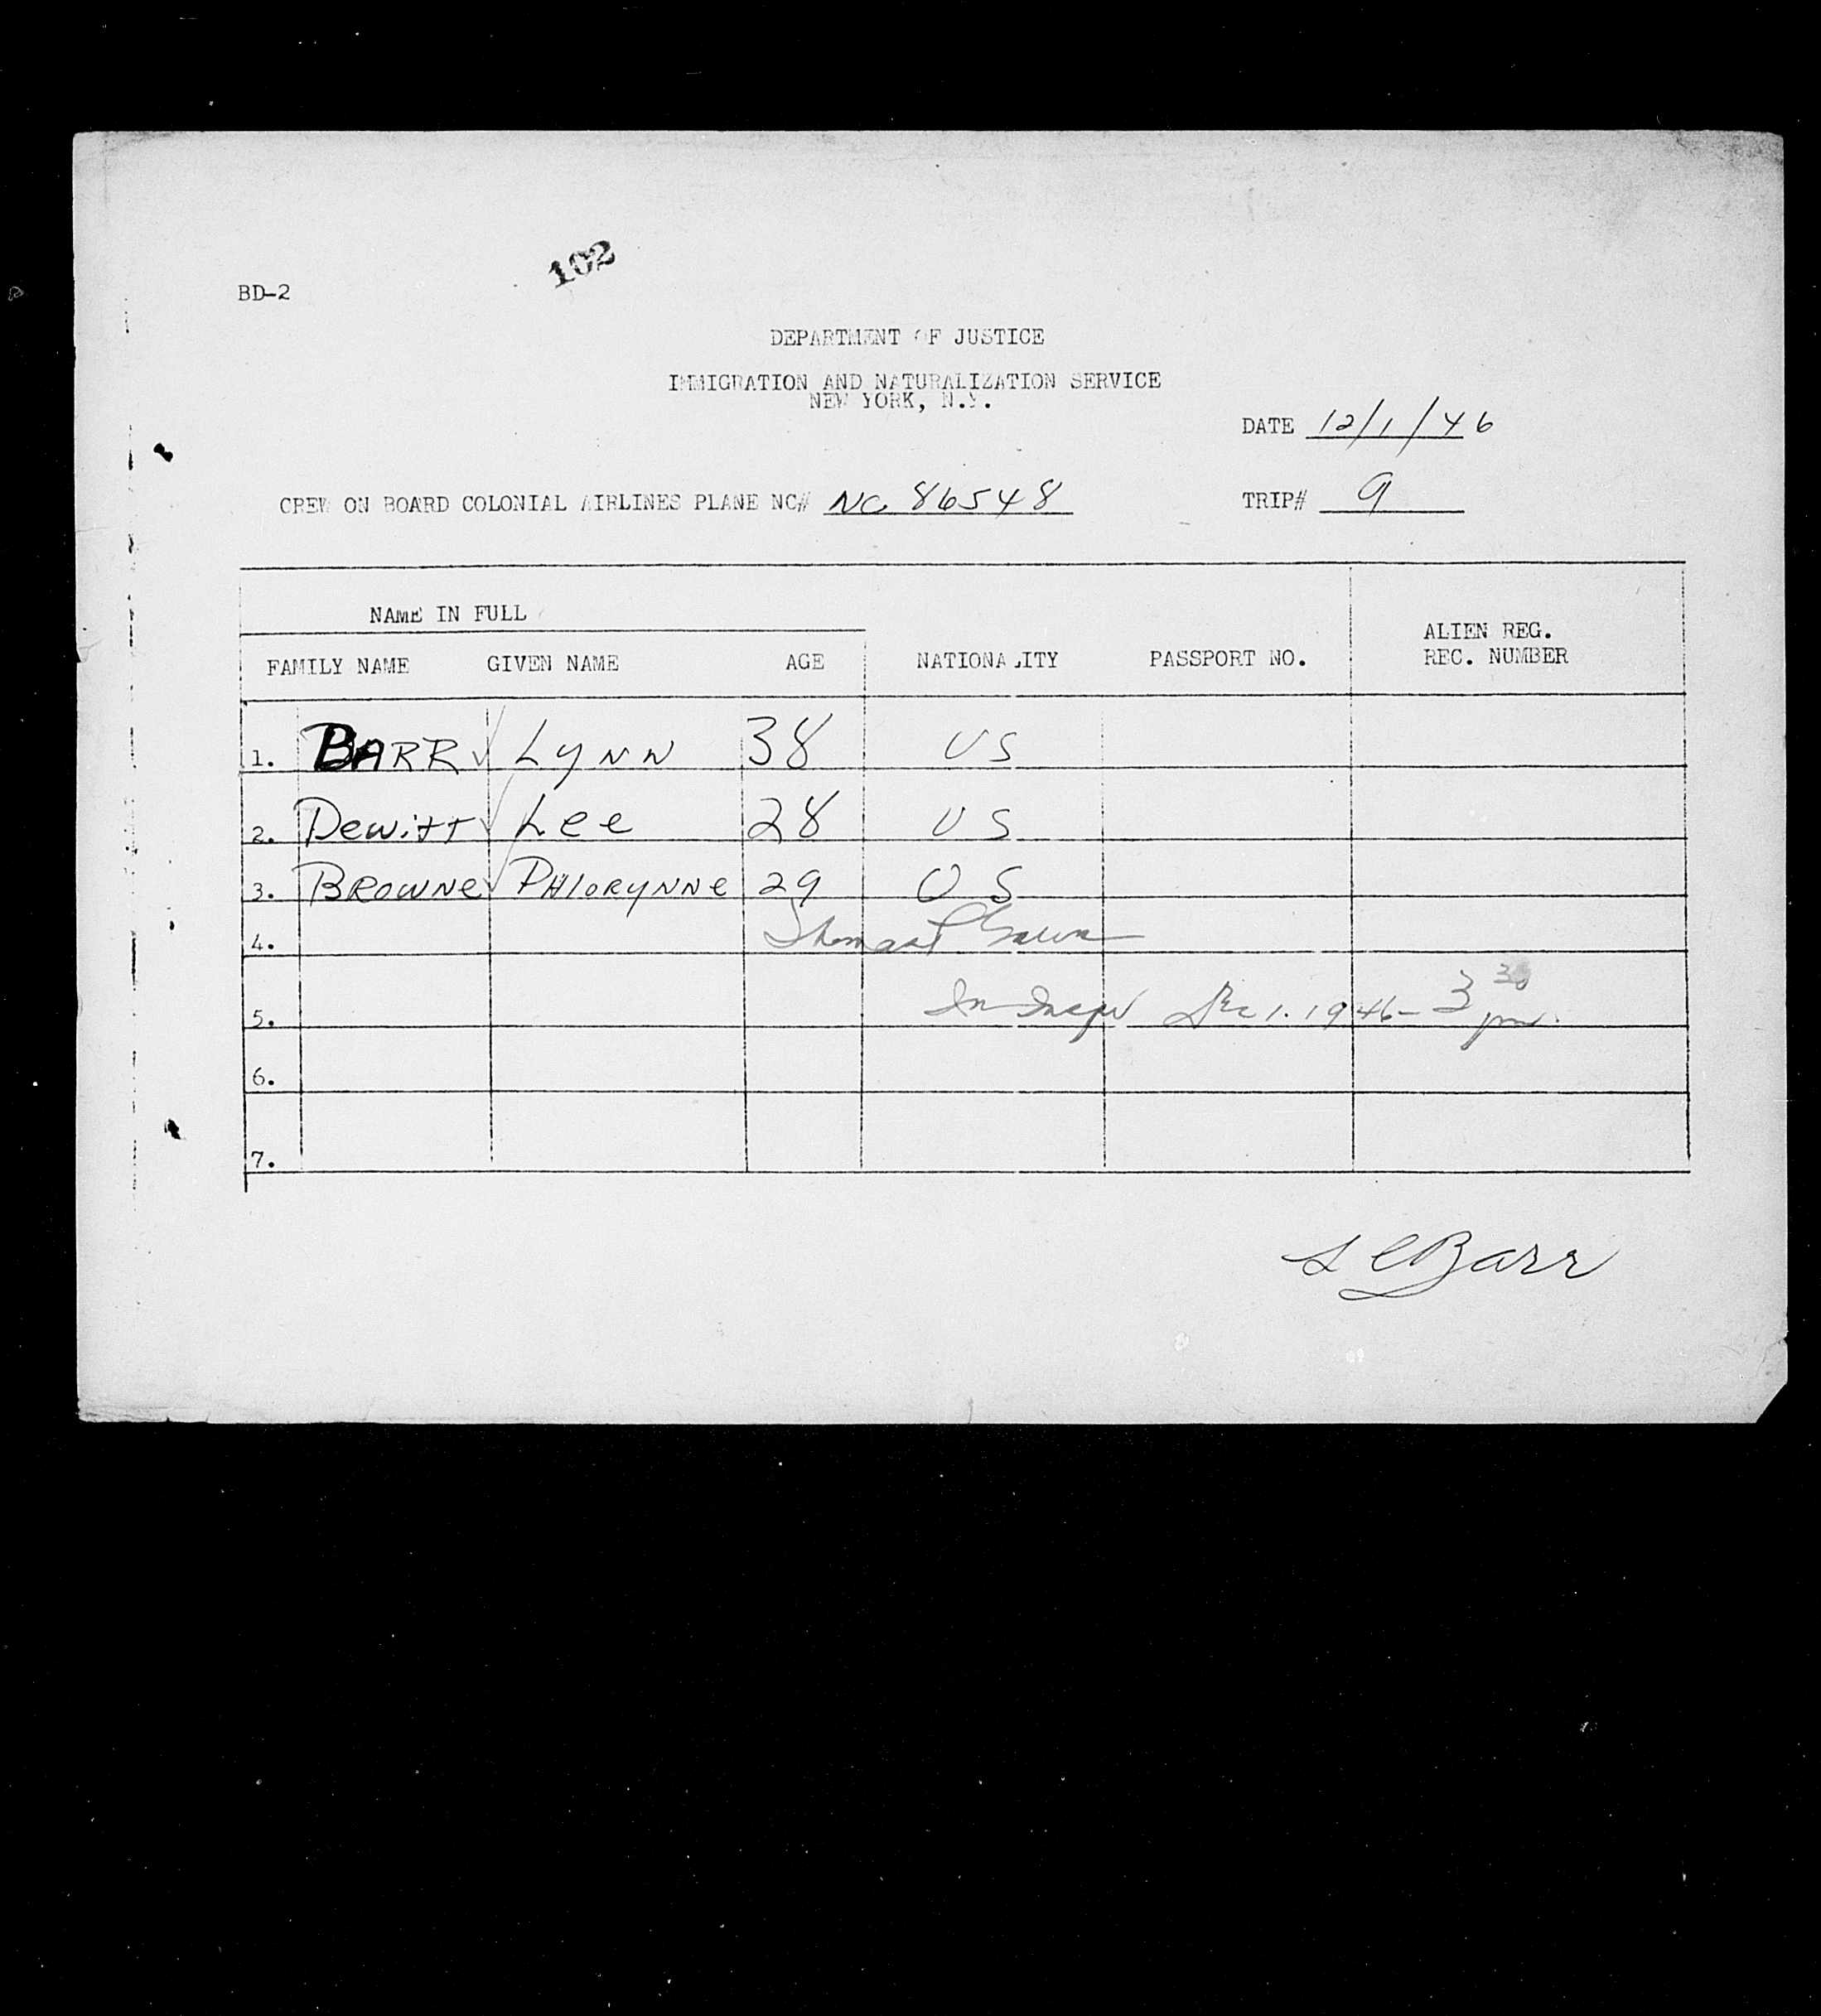 102
BD-2
DEPARTMENT OF JUSTICE
IMMIGRATION AND NATURALIZATION SERVICE
NEW YORK, N.Y.
DATE 12/1/46
CREW ON BOARD COLONIAL AIRLINES PLANE NC# NC 86548 TRIP# 9
NAME IN FULL
FAMILY NAME GIVEN NAME AGE NATIONALITY PASSPORT NO. ALIEN REG. REC. NUMBER
1. BARR ✓ Lynn 38 US
2. Dewitt ✓ Lee 28 US
3. BROWNe ✓ PHlORyNNe 29 US
4. Thomas
5. Dec 1. 1946 - 3 30 pm.
6.
7.
Barr